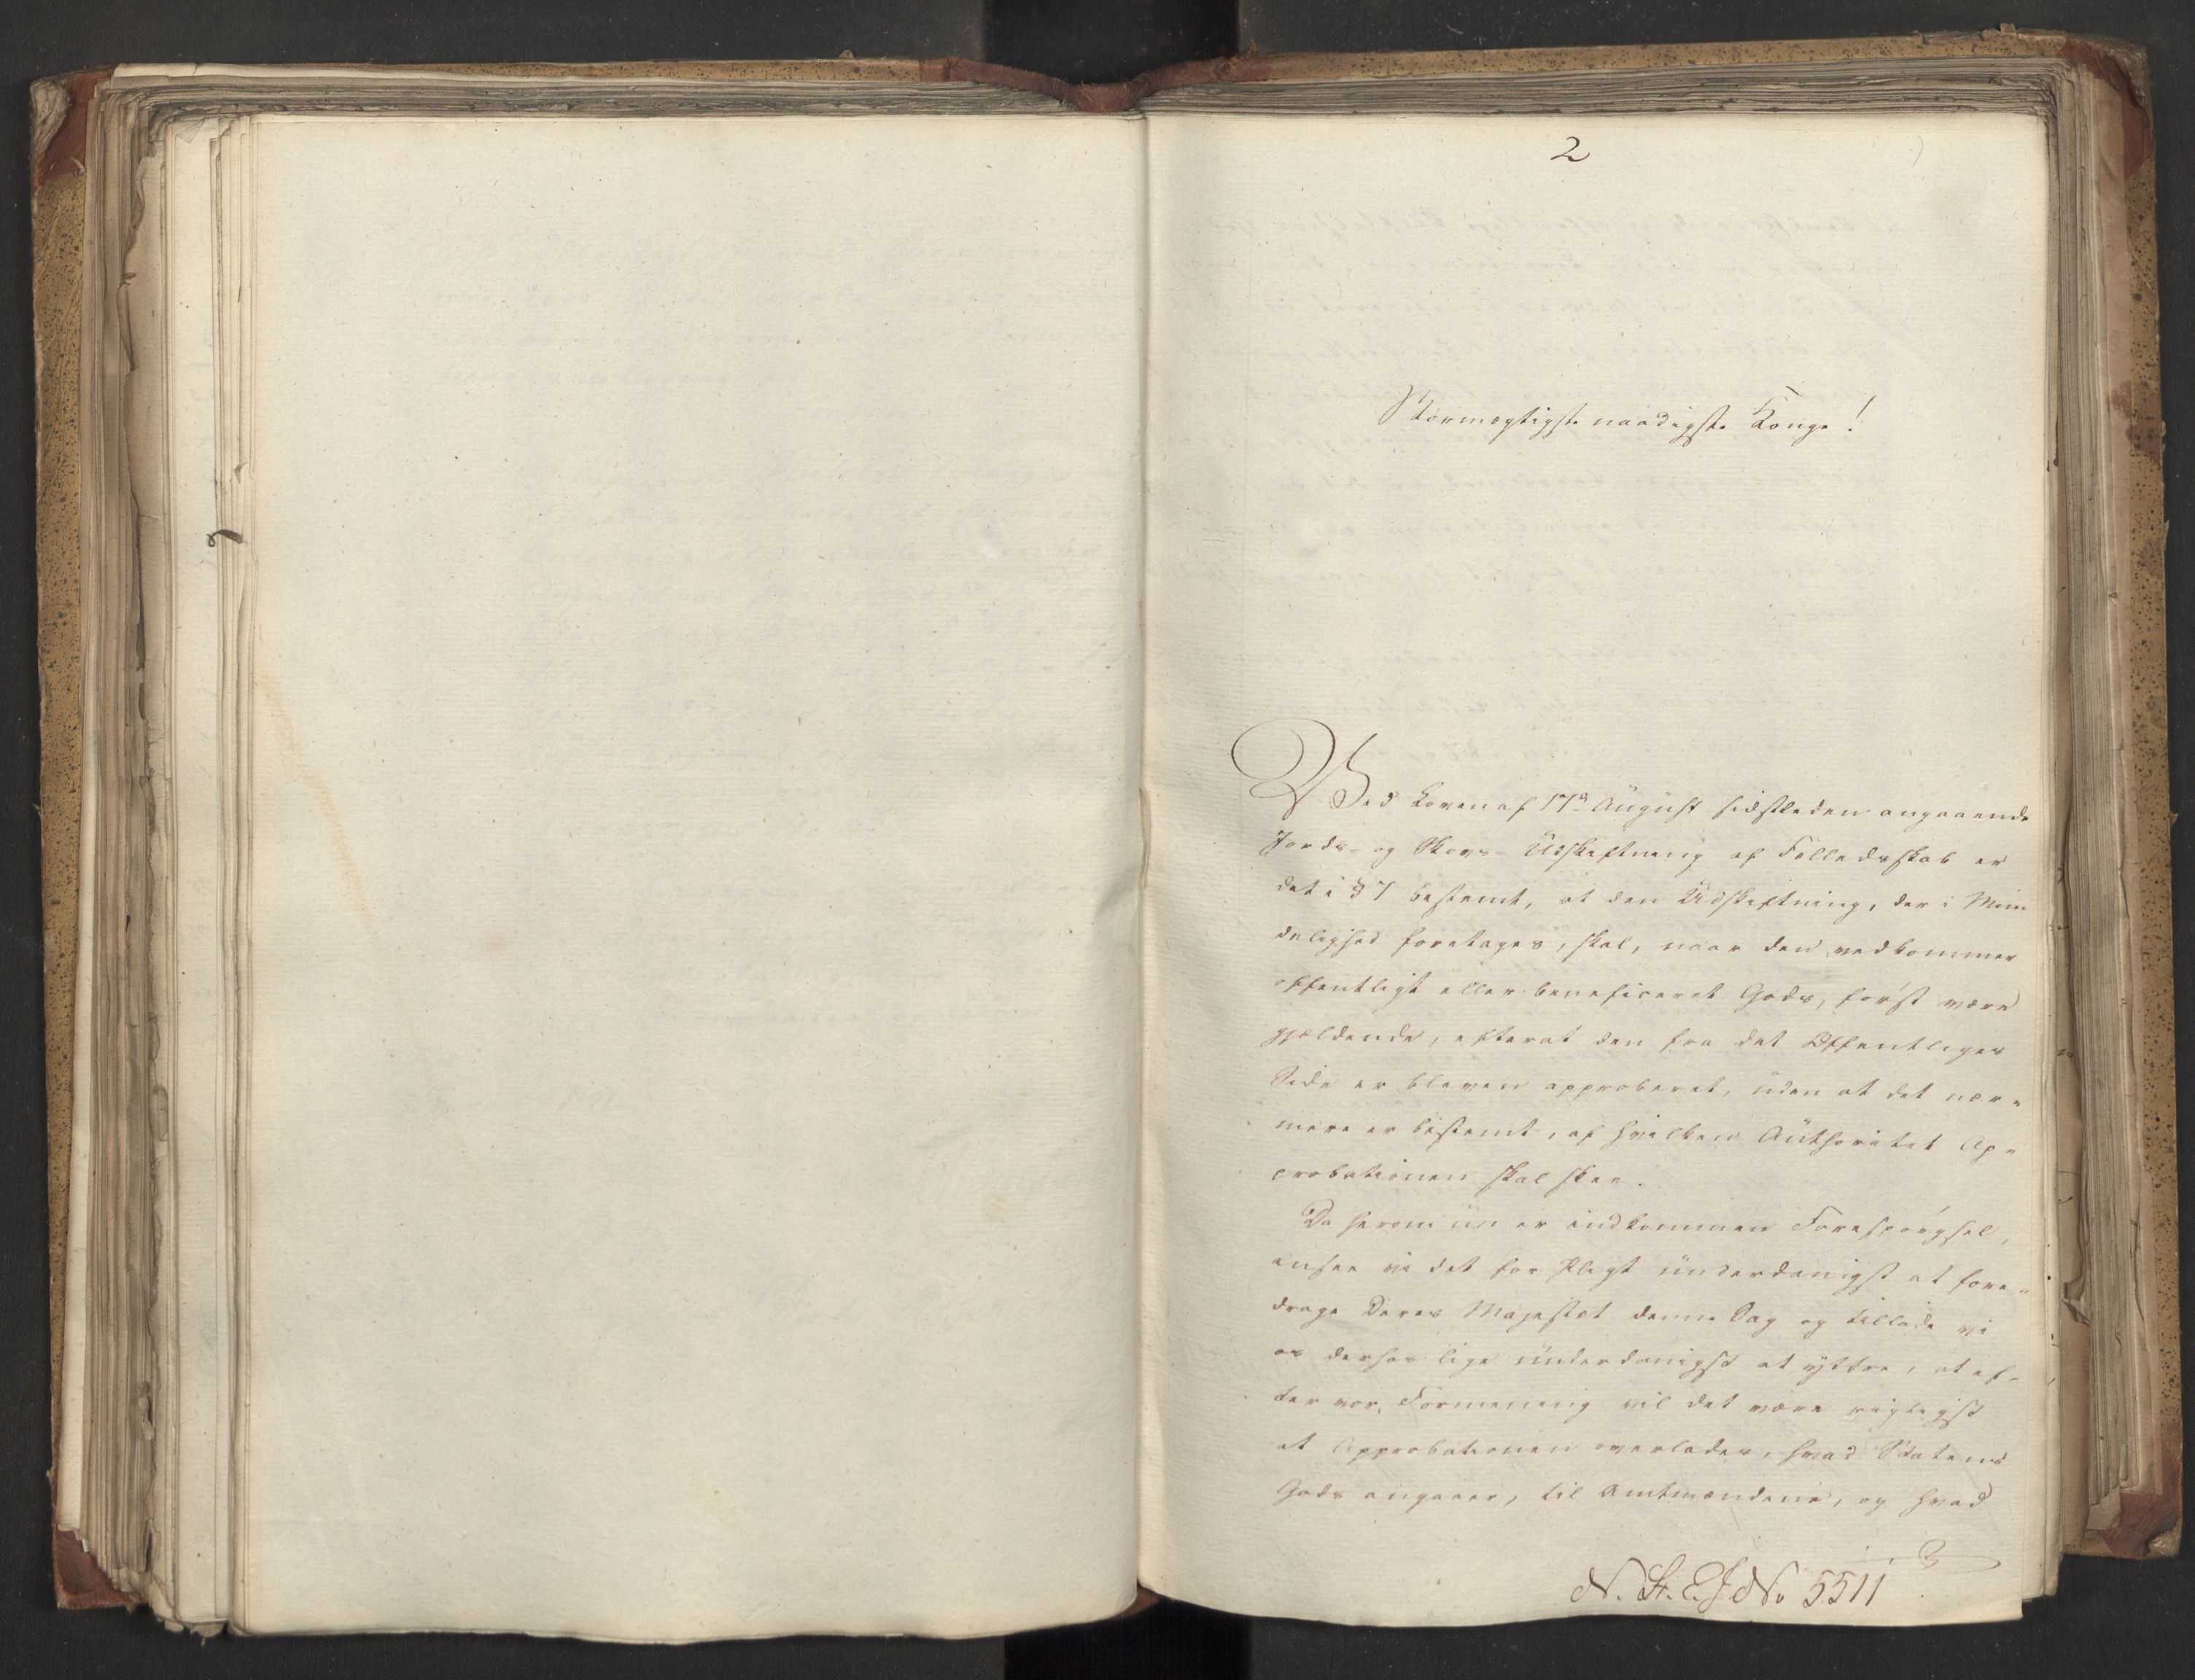 2
Stormægtigste naadigste Konge!
Ved Loven af 17de August sidstleden angaaende
Jords- og Skovs-Udskiftning af Fælledsskab er
det i § 7 bestemt, at den Udskiftning, der i Min
delighed foretages, skal, naar den vedkommer
offentligt eller beneficeret Gods, først være
gjældende, efterat den fra det Offentliges
Side er bleven approberet, uden at det nær-
mere er bestemt, af hvilken Authoritet Ap-
probationen skal skee.
Da herom nu er indkommen Forespørgsel,
ansee vi det for Pligt underdanigst at fore-
drage Deres Majestæt denne Sag og tillade vi
os derhos lige underdanigst at yttre, at ef-
ter vor Formening vil det være rigtigst
at Approbationen overlades, hvad Statens
Gods angaaer, til Amtmændene, og hvad
N. St. E. J No 5511